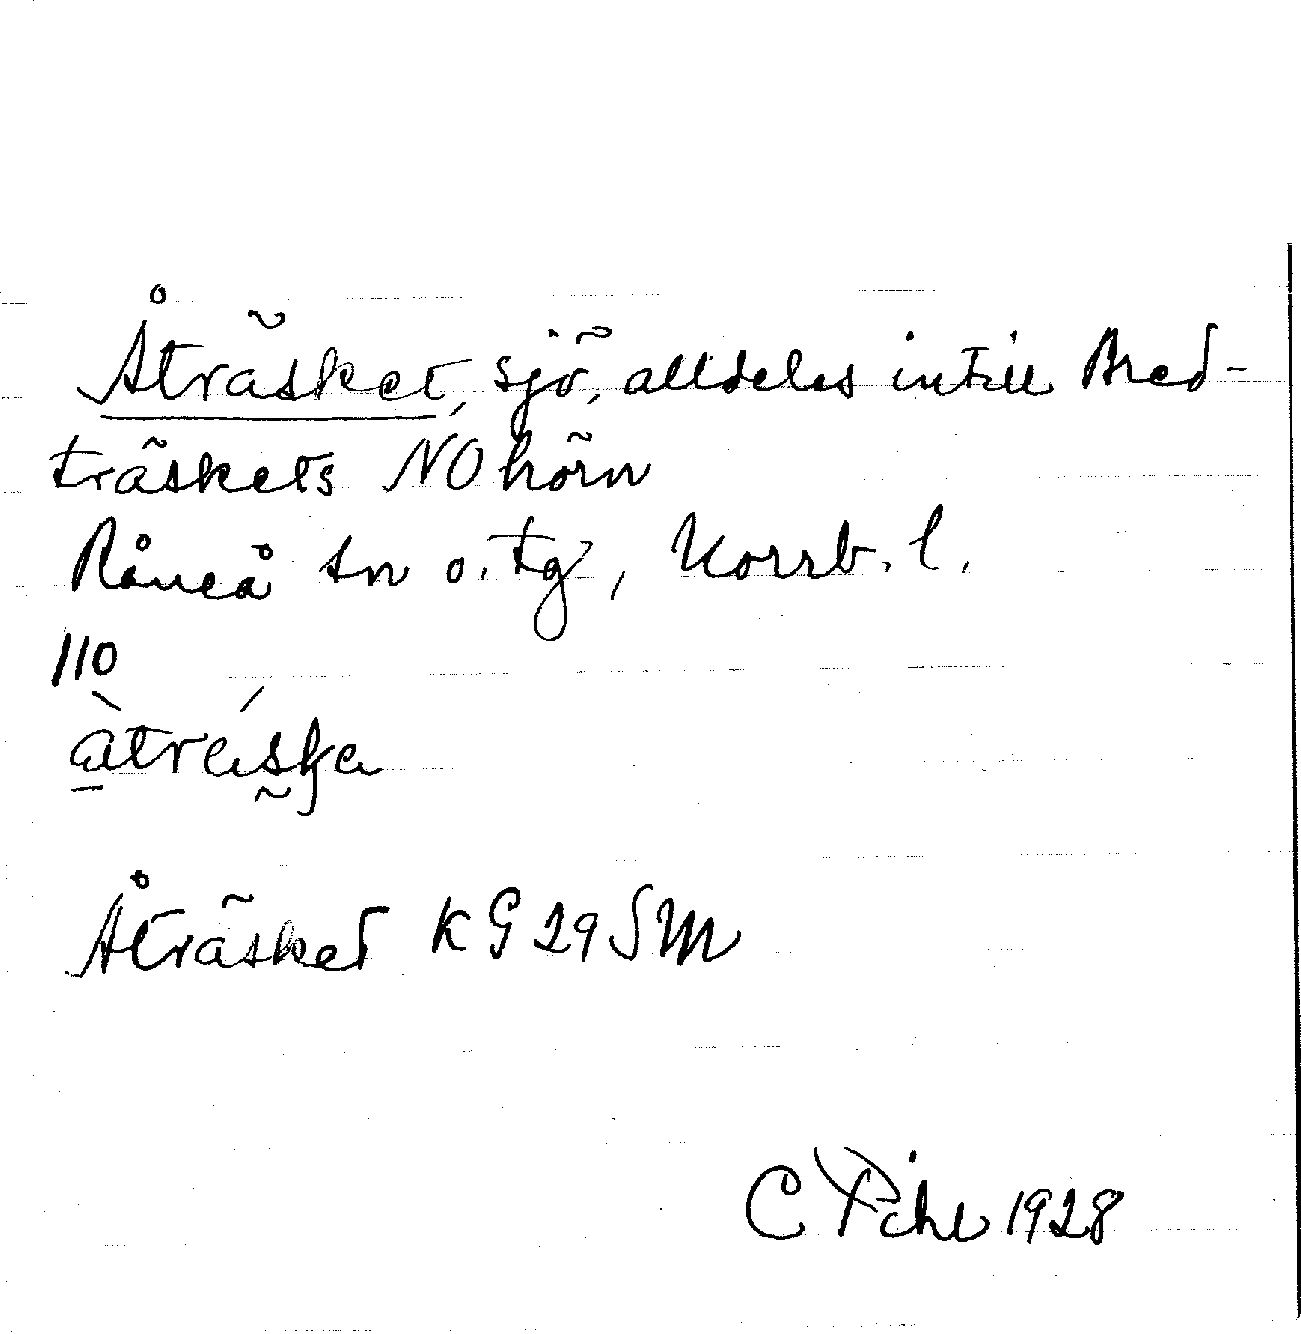 Åträsket, sjö, alldeles intill Bred-
träskets NO hörn
Råneå sn o. tg, Norrb. l.
110
Åträsket KG 29 SM
C Pihl 1928